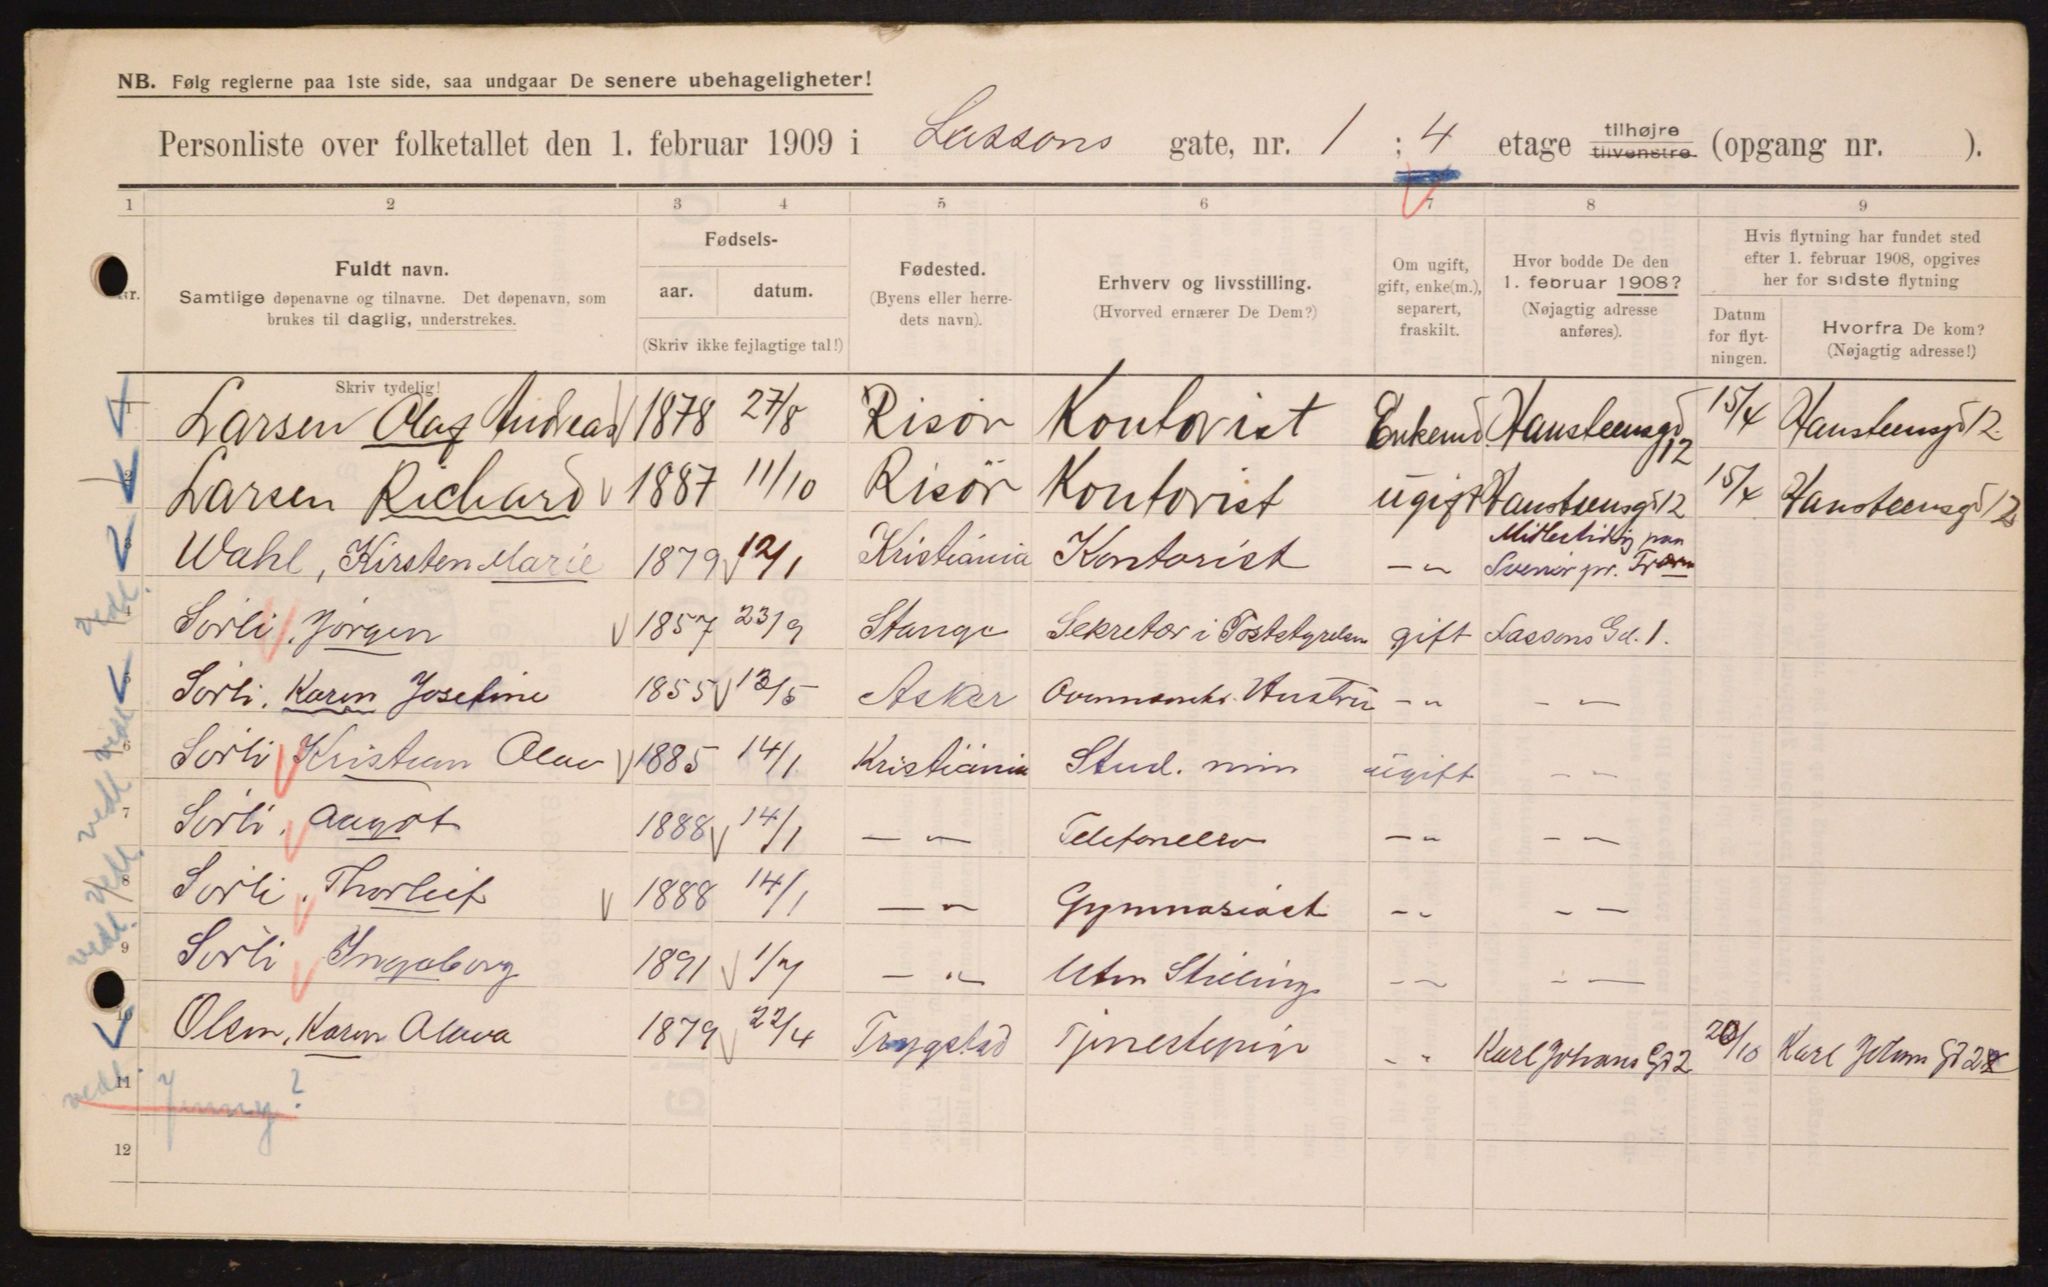 NB. Følg reglerne paa 1ste side, saa undgaar De senere ubehageligheter!
Personliste over folketallet den 1. februar 1909 i Lassons gate, nr. 1 ; 4 etage tilhøjre tilvenstre (opgang nr. ).
1 2 3 4 5 6 7 8 9
Nr.
Fuldt navn.
Samtlige døpenavne og tilnavne. Det døpenavn, som
brukes til daglig, understrekes.
Skriv tydelig!
Fødsels-
aar. datum.
(Skriv ikke fejlagtige tal!)
Fødested.
(Byens eller herre-
dets navn).
Erhverv og livsstilling.
(Hvorved ernærer De Dem?)
Om ugift,
gift, enke(m.),
separert,
fraskilt.
Hvor bodde De den
1. februar 1908?
(Nøjagtig adresse
anføres).
Hvis flytning har fundet sted
efter 1. februar 1908, opgives
her for sidste flytning
Datum
for flyt-
ningen.
Hvorfra De kom?
(Nøjagtig adresse!)
1 Larsen Olaf Andreas 1878 27/8 Risör Kontorist Enkem. Hansteensgd 12 15/4 Hansteensgd 12
2 Larsen Richard 1887 11/10 Risör Kontorist ugift Hansteensgd 12 15/4 Hansteensgd 12
3 Wahl, Kirsten Marie 1879 12/1 Kristiania Kontorist — „ Midlertidig paa
Svenör pr. Fræna
4 Sörli, Jörgen 1857 23/9 Stange Sekretær i Poststyrelsen gift Lassons Gd. 1.
5 Sörli, Karen Josefine 1855 13/5 Asker Ovennævntes Hustru — „ — „ —
6 Sörli Kristian Olav 1885 14/1 Kristiania Stud. min ugift — „ —
7 Sörli, Aagot 1888 14/1 — „ — Telefonelev — „ — „ —
8 Sörli, Thorleif 1888 14/1 — „ — Gymnasiast — „ — „ —
9 Sörli Ingeborg 1891 1/7 — „ — Uten Stilling — „ — „ —
10 Olsen, Karen Olava 1879 22/4 Trygstad Tjenestepige — „ Karl Johans Gd 2 20/10 Karl Johans Gd 2
11 Jenny?
12
vedl.
vedl.
vedl
vedl.
vedl.
vedl.